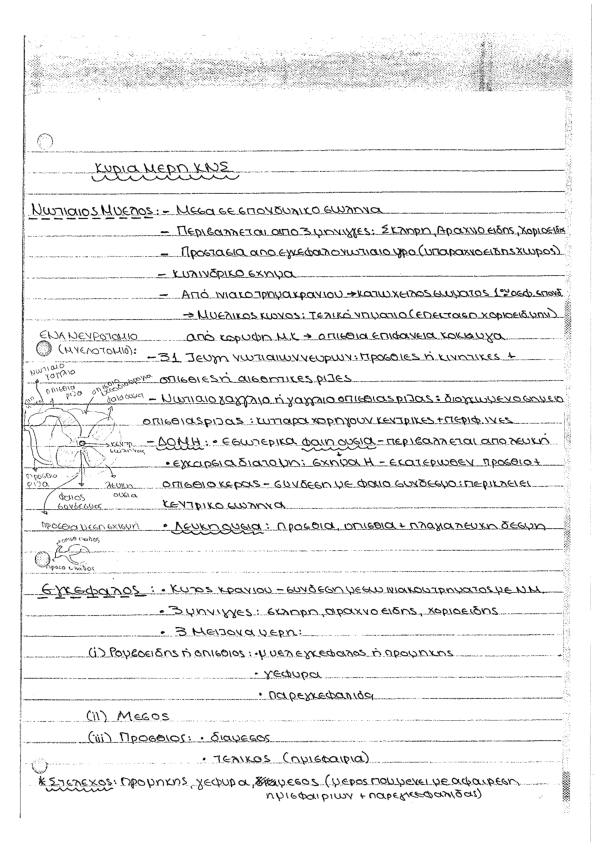 ΚΥΡΙΑ ΜΕΡΗ ΚΝΣ
Νωτιαιος Μυελος: - Μεσα σε σπονδυλικο σωληνα
- Περιβαλλεται απο 3 μηνιγγες: Σκληρη, Αραχνοειδης, Χοριοειδη
- Προστασια απο εγκεφαλονωτιαιο υγρο (υπαραχνοειδης χωρος)
- Κυλινδρικο σχημα
- Από ινιακο τρημα κρανιου → κατω χειλος σωματος 1ου οσφ. σπονδ
→ Μυελικος κωνος: Τελικό νηματιο (επεκταση χοριοειδων)
ΕΝΑ ΝΕΥΡΟΤΟΜΙΟ από κορυφη Μ.Κ → οπισθια επιφανεια κοκκυγα
(ΜΥΕΛΟΤΟΜΙΟ): - 31 ζευγη νωτιαιων νευρων: Προσθιες ή κινητικες +
οπισθιες ή αισθητικες ριζες
νωτιαιο
γαγγλιο
οπισθια
ριζα
- Νωτιαιο γαγγλιο ή γαγγλιο οπισθιας ριζας: διογκωμενο σημειο
οπισθιας ριζας: κυτταρα χορηγουν κεντρικες + περιφ. ινες
- ΔΟΜΗ: • Εσωτερικα φαιη ουσια - περιβαλλεται απο λευκη
κεντρ
σωληνας
• εγκαρσια διατομη: σχημα Η - εκατερωθεν προσθιο +
προσθια
ριζα
λευκη
ουσια
οπισθιο κερας - συνδεση με φαιο συνδεσμο: περικλειει
φαιος
συνδεσμος
κεντρικο σωληνα
προσθια μεση σχισμη
• Λευκη ουσια: προσθια, οπισθια + πλαγια λευκη δεσμη
Εγκεφαλος: • Κυτος κρανιου - συνδεση μεσω ινιακου τρηματος με Ν.Μ.
• 3 μηνιγγες: σκληρη, αραχνοειδης, χοριοειδης
• 3 Μειζονα μερη:
(i) Ρομβοειδης ή οπισθιος: • μυελεγκεφαλος ή προμηκης
• γεφυρα
• παρεγκεφαλιδα
(ii) Μεσος
(iii) Προσθιος: • διαμεσος
• τελικος (ημισφαιρια)
* Στελεχος: προμηκης, γεφυρα, μεσος (μερος που μενει με αφαιρεση
ημισφαιριων + παρεγκεφαλιδας)